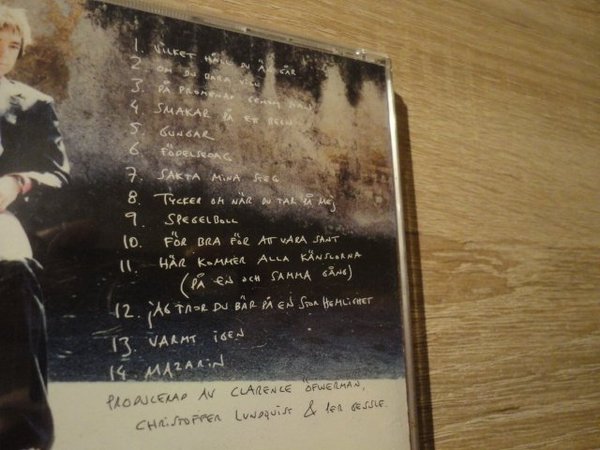 1. VILKET HÅLL DU ÄN GÅR
2. OM DU BARA VILL
3. PÅ PROMENAD GENOM STAN
4. SMAKAR PÅ ETT REGN
5. GUNGAR
6. FÖDELSEDAG
7. SAKTA MINA STEG
8. TYCKER OM NÄR DU TAR PÅ MEJ
9. SPEGELBOLL
10. FÖR BRA FÖR ATT VARA SANT
11. HÄR KOMMER ALLA KÄNSLORNA
(PÅ EN OCH SAMMA GÅNG)
12. JAG TROR DU BÄR PÅ EN STOR HEMLIGHET
13. VARMT IGEN
14. MAZARIN
PRODUCERAD AV CLARENCE ÖFWERMAN,
CHRISTOFFER LUNDQUIST & PER GESSLE.